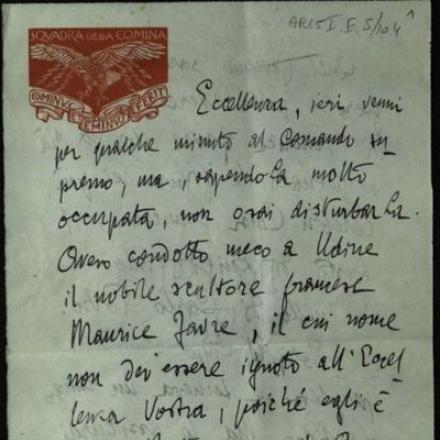 SQVADRA DELLA COMINA
COMINVS ET EMINVS FERIT
ARC5I.E.5/104
Eccellenza, ieri venni
per qualche minuto al Comando su-
premo; ma, sapendoLa molto
occupata, non osai disturbarLa.
Avevo condotto meco a Udine
il nobile scultore francese
Maurice Favre, il cui nome
non dev'essere ignoto all'Eccel-
lenza Vostra, poiché egli è